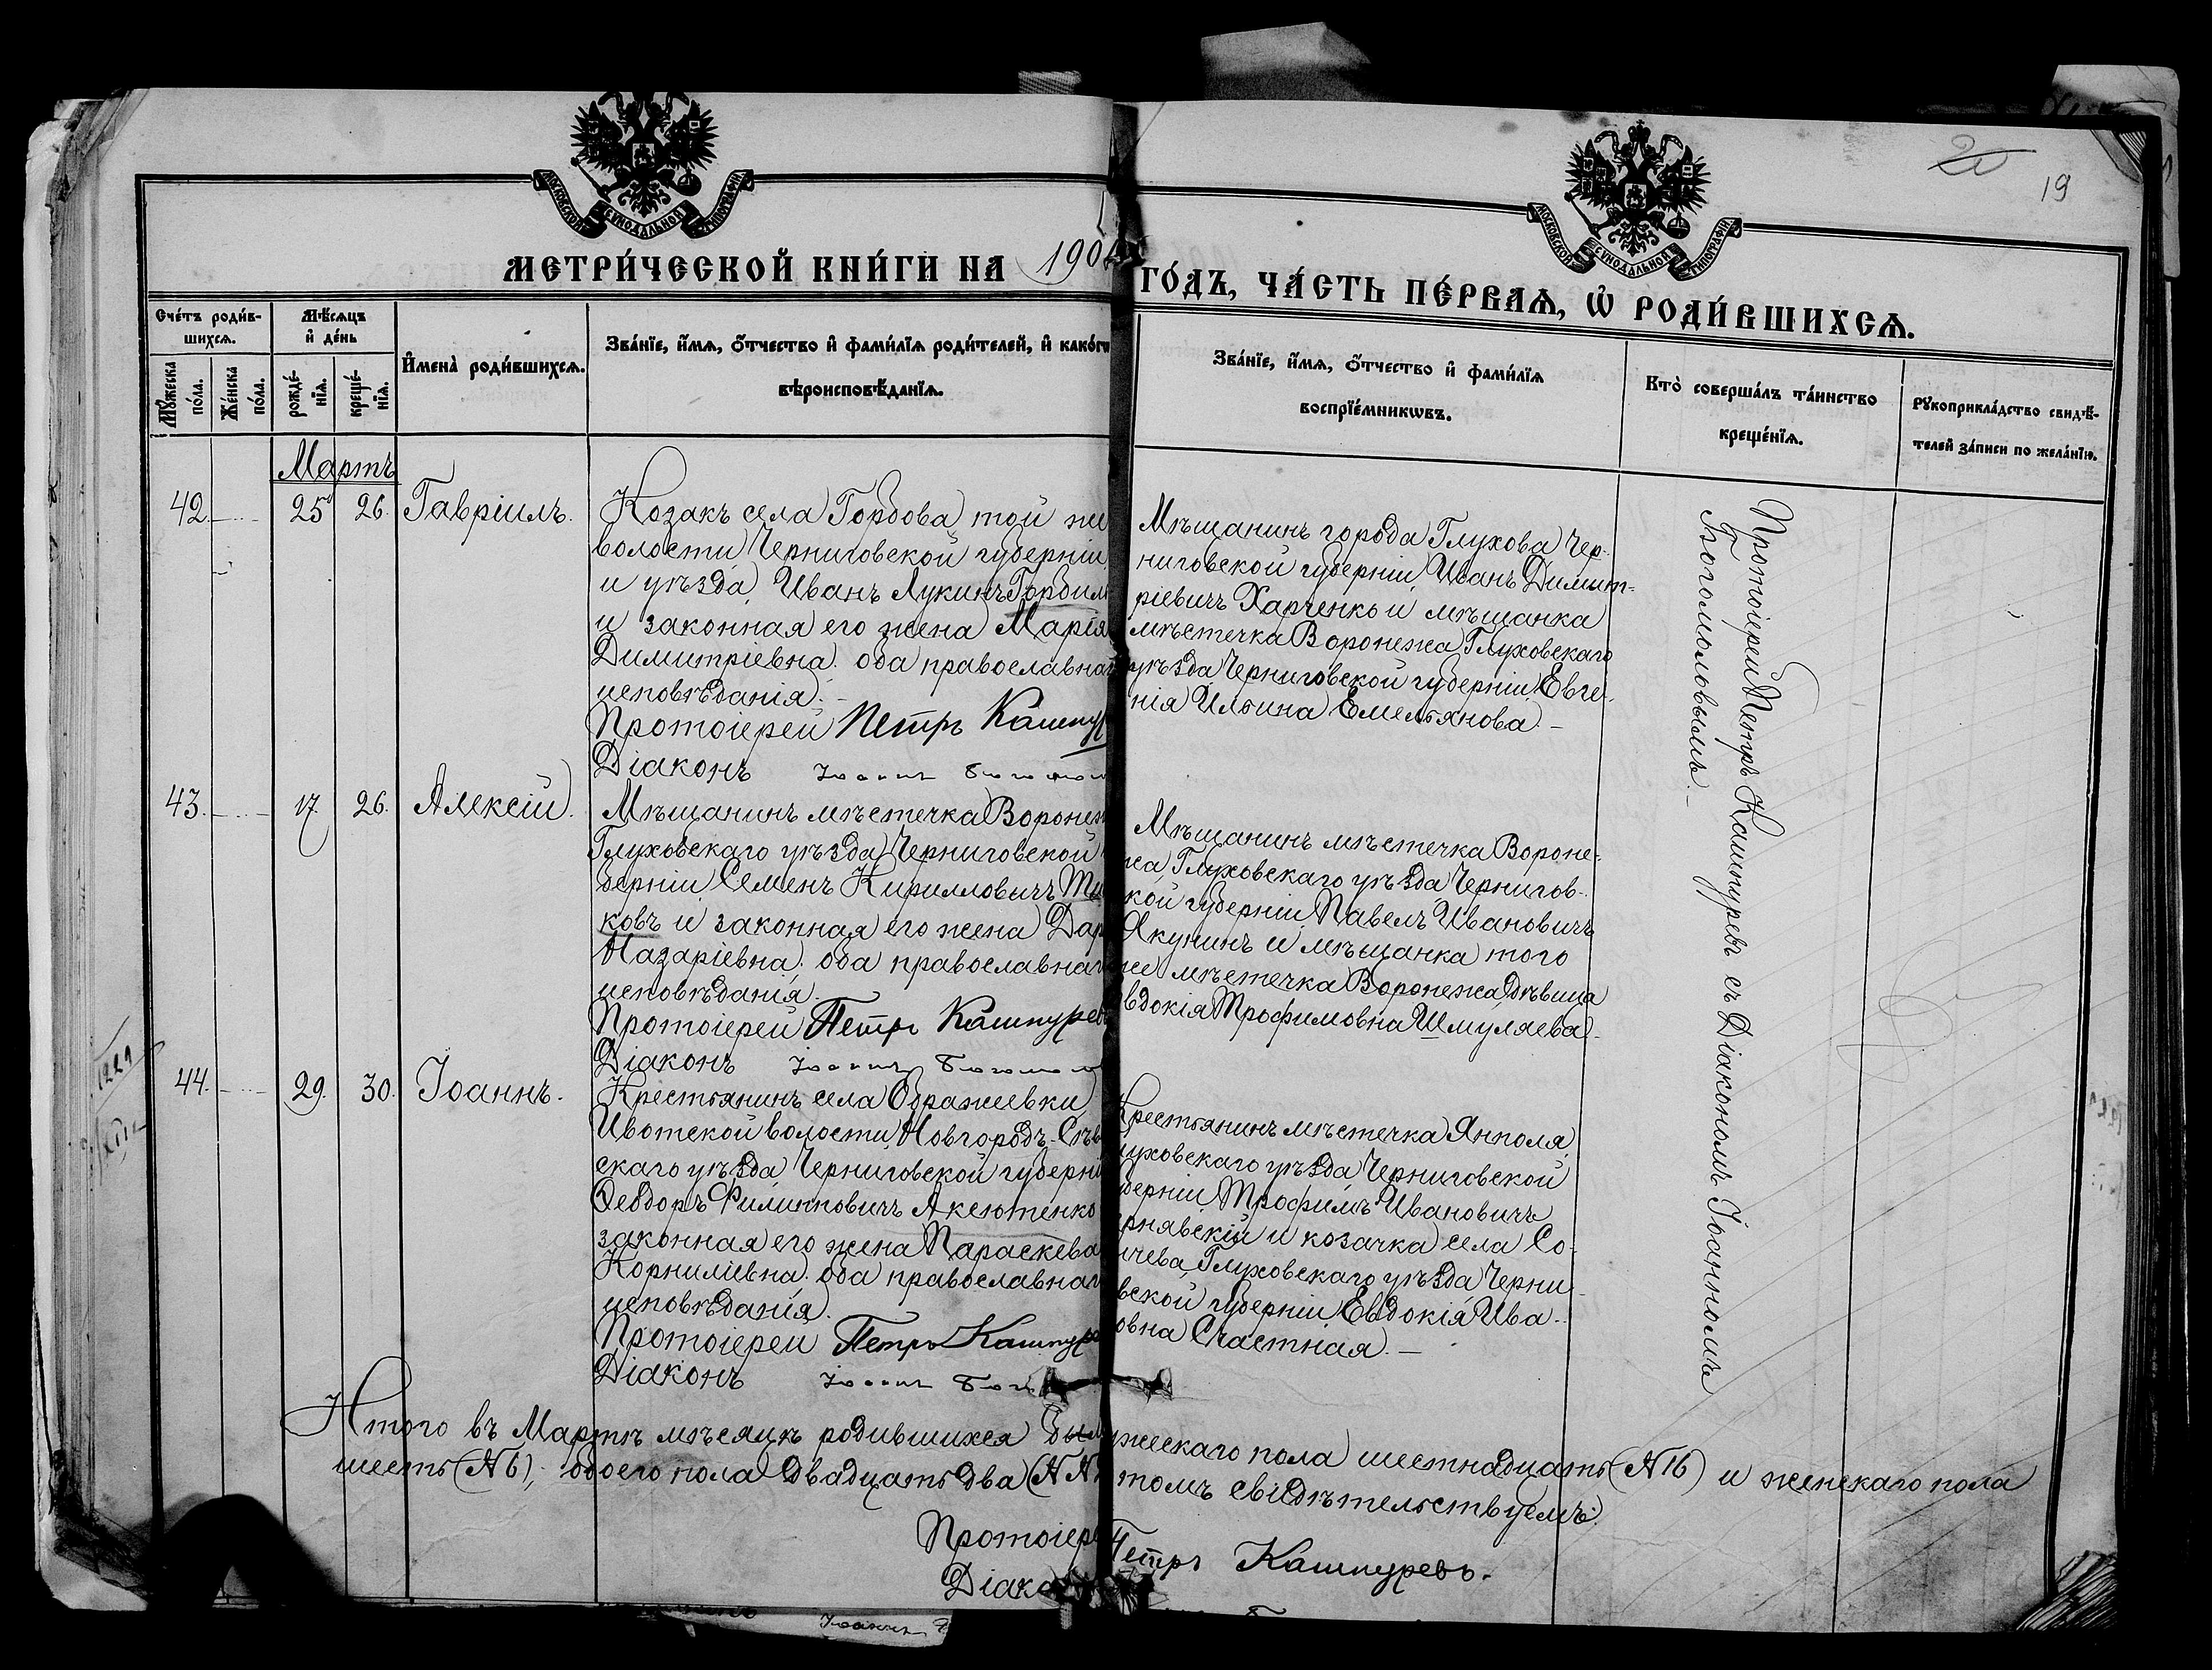 20
19
МОСКОВСКОЙ СѴНОДАЛЬНОЙ ТИПОГРАФІИ
МОСКОВСКОЙ СѴНОДАЛЬНОЙ ТИПОГРАФІИ
МЕТРИ́ЧЕСКОЙ КНИ́ГИ НА 190
ГО́ДЪ, ЧА́СТЬ ПЕ́РВАѦ, Ѡ҆ РОДИ́ВШИХСѦ.
Сче́тъ роди́в-
шихсѧ.
Мꙋ́жеска по́ла.
Же́нска по́ла.
Мѣ́сѧцъ
и҆ де́нь
рожде́-нїѧ.
креще́-нїѧ.
И҆мена̀ роди́вшихсѧ.
Зва́нїе, и҆́мѧ, ѻ҆́тчество и҆ фами́лїѧ роди́телей, и҆ како́гѡ
вѣроисповѣ́данїѧ.
Зва́нїе, и҆́мѧ, ѻ҆́тчество и҆ фами́лїѧ
воспрїе́мникѡвъ.
Кто̀ соверша́лъ та́инство
креще́нїѧ.
Рꙋкоприкла́дство свидѣ́-
телей за́писи по жела́нїю.
Мартъ
42. 25 26. Гавріилъ.
Козакъ села Горбова той же
волости Черниговской губерніи
и уѣзда, Иванъ Лукинъ
и законная его жена Марія
Димитріевна. оба православнаго
исповѣданія. –
Протоіерей Петръ Кашпур
Діаконъ Іоаннъ
Мѣщанинъ города Глухова Чер-
ниговской губерніи, Иванъ Димит-
ріевичъ Харченко и мѣщанка
мѣстечка Воронежа, Глуховскаго
уѣзда Черниговской губерніи Евге-
нія Ильина Емельянова. –
Протоіерей Петръ Кашпуревъ съ Діакономъ Іоанномъ
Богомоловымъ. –
43. 17. 26. Алексій.
Мѣщанинъ мѣстечка Воронеж
Глуховскаго уѣзда, Черниговской
берніи, Семенъ Кирилловичъ
ковъ и законная его жена Дар
Назаріевна. оба православнаг
исповѣданія.
Протоіерей Петръ Кашпурев
Діаконъ Іоаннъ
Мѣщанинъ мѣстечка Вороне-
жа, Глуховскаго уѣзда Чернигов-
кой губерніи, Павелъ Ивановичъ
Якунинъ и мѣщанка того
же мѣстечка Воронежа, дѣвица
вдокія Трофимовна Шмуляева.
44. 29. 30. Іоаннъ.
Крестьянинъ села Ображіевки,
Ивотской волости, Новгородъ-Сѣв
скаго уѣзда Черниговской губерні
Ѳеодоръ Филипповичъ Аксютенко
законная его жена Параскева
Корниліевна. оба православнаг
исповѣданія.
Протоіерей Петръ Кашпуре
Діаконъ Іоаннъ
Крестьянинъ мѣстечка Янполя,
луховскаго уѣзда Черниговской
уберніи Трофимъ Ивановичъ
рнявскій и козачка села Со-
ичева, Глуховскаго уѣзда Черни-
вской губерніи Евдокія Ива-
овна Счастная. –
Итого въ Мартѣ мѣсяцѣ родившихся был жескаго пола шестнадцать (№ 16) и женскаго пола
шесть (№ 6), обоего пола двадцать два (№ томъ свидѣтельствуемъ:
Протоіере Петръ Кашпуревъ.
Діако